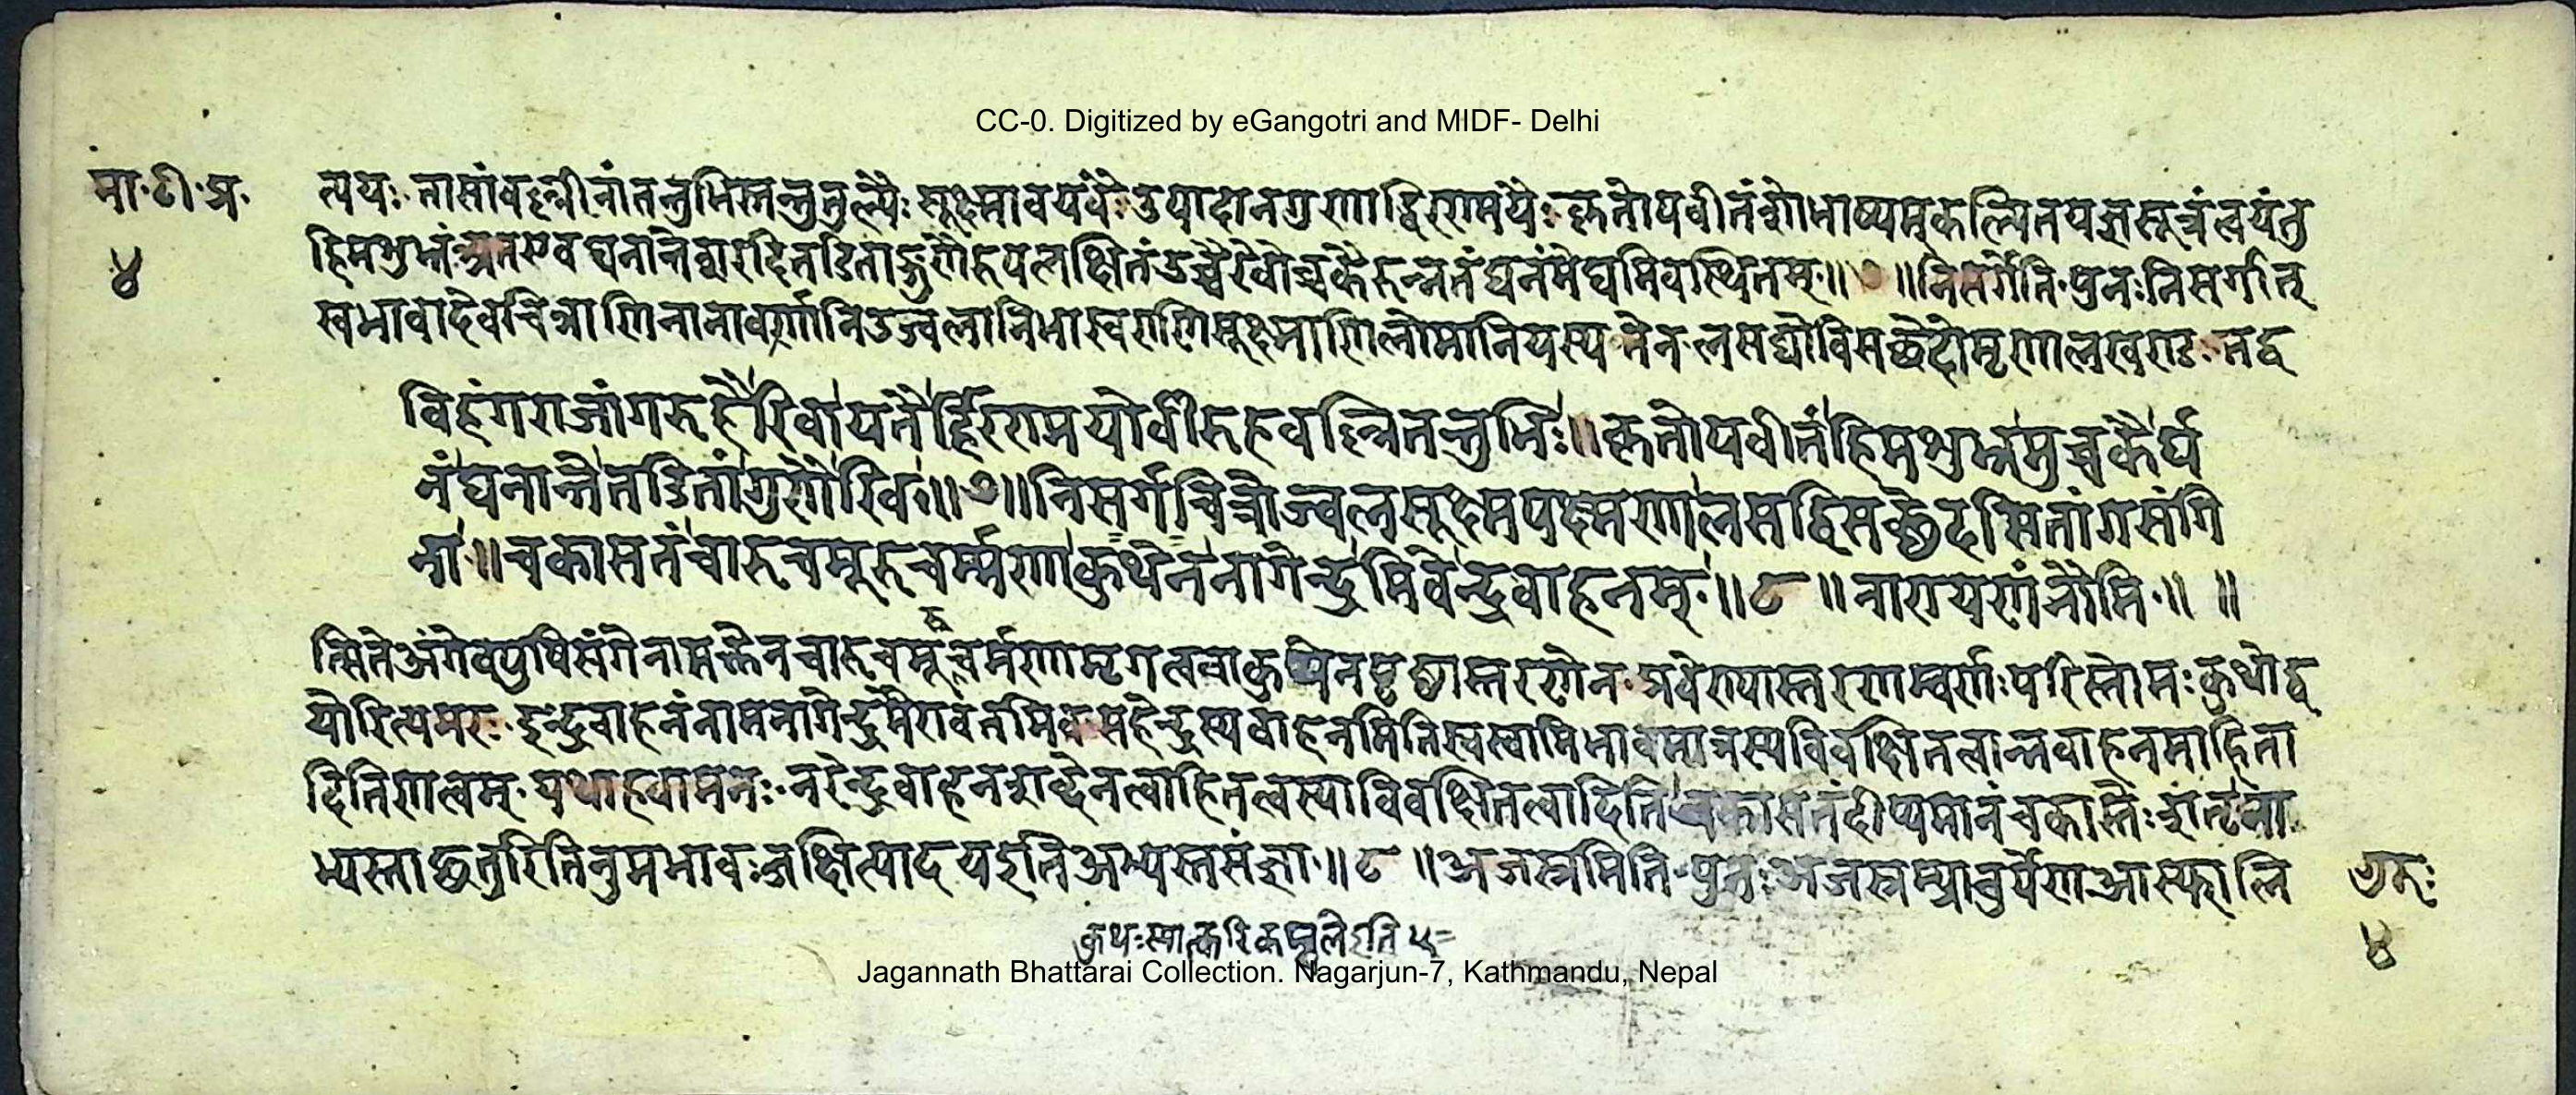 CC-0. Digitized by eGangotri and MIDF- Delhi
मा॰टी॰प्र॰ त्ययः तासांवल्लीनांतन्तुभिस्तन्तुतुल्यैः सूक्ष्मावयवैः उपादानगुणाद्धिरण्मयैः कृतोपवीतंशोभाप्यमुकल्पितयज्ञसूत्रंत्नयंतु
४ हिमशुभ्रंअतएवघनान्तेशरदितडिताङ्गुणैरुपलक्षितंउच्चैरेवोच्चकैरुन्नतंघनंमेघमिवस्थितम्॥७॥निसर्गेति॰पुनःनिसर्गात्
स्वभावादेवचित्राणिनानावर्णानिउज्वलानिभास्वराणिसूक्ष्माणिलोमानियस्यतेनलसद्योविसच्छेदोमृणालखण्डः तद्व
विहंगराजांगरुहैरिवायतैर्हिरण्मयोर्वीरुहवल्लितन्तुभिः॥कृतोपवीतंहिमशुभ्रमुच्चकैर्घ
नंघनान्तेतडितांगुणैरिव॥७॥निसर्गचित्रोज्वलसूक्ष्मपक्ष्मणालसद्विसच्छेदसितांगसंगि
ना॥चकासतंचारुचमूरुचर्म्मणाकुथेननागेन्द्रमिवेन्द्रवाहनम्॥८॥नारायणंनौमि॰॥ ॥
त्सितेअंगेवपुषिसंगेनामक्तेनचारुचमूरुचर्मणामृगत्वचाकुथेनपृष्ठास्तरणेन॰प्रवेण्यास्तरणम्वर्णःपरिस्तोमःकुथोद्व
योरित्यमरः इन्द्रवाहनंनामनागेन्द्रमैरावतमिवमहेन्द्रस्यवाहनमितिस्वस्वामिभावमात्रस्यविवक्षितत्वान्नवाहनमाहिता
दितिणत्वम् यथाहवामनः नरेन्द्रवाहनशब्देनत्वाहितत्वस्याविवक्षितत्वादितिचकासतंदीप्यमानंचकास्तेः शतृना
भ्यस्ताच्छतुरितिनुमभावःजक्षित्यादयइतिअभ्यस्तसंज्ञा॥८॥अजस्रमिति॰पुनःअजस्रम्प्राचुर्येणआस्फालि
गुरुः
४
कुथःस्यात्करिकम्बलेइति ५
Jagannath Bhattarai Collection. Nagarjun-7, Kathmandu, Nepal